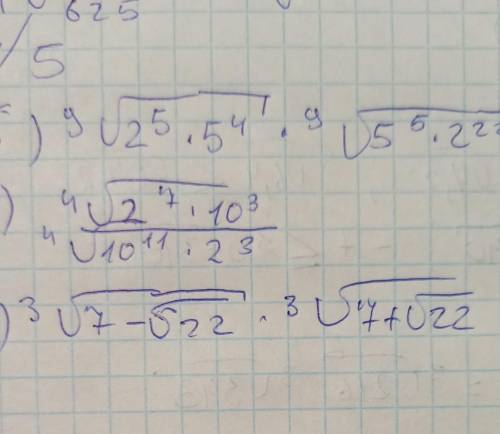 625
/ 5
) ⁹√(2⁵ · 5⁴) · ⁹√(5⁵ · 2²²
) ⁴√(2⁷ · 10³)
⁴√(10¹¹ · 2³)
) ³√(7 - √22) · ³√(7 + √22)